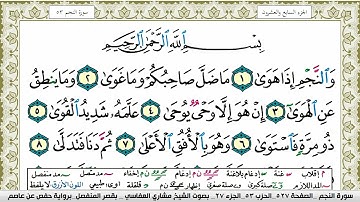 الجزء السابع والعشرون
سورة النجم ٥٣
بِسْمِ اللَّهِ الرَّحْمَٰنِ الرَّحِيمِ
وَالنَّجْمِ إِذَا هَوَىٰ ١ مَا ضَلَّ صَاحِبُكُمْ وَمَا غَوَىٰ ٢ وَمَا يَنطِقُ
عَنِ الْهَوَىٰ ٣ إِنْ هُوَ إِلَّا وَحْيٌ يُوحَىٰ ٤ عَلَّمَهُ شَدِيدُ الْقُوَىٰ ٥
ذُو مِرَّةٍ فَاسْتَوَىٰ ٦ وَهُوَ بِالْأُفُقِ الْأَعْلَىٰ ٧ ثُمَّ دَنَا فَتَدَلَّىٰ ٨
إقلاب غنة إدغام بلاغنة إخفاء مد منفصل
المد اللازم قلقلة
سورة النجم - الصفحة ٥٢٧ - الحزب ٥٣ - الجزء ٢٧ - بصوت الشيخ مشاري العفاسي - بقصر المنفصل برواية حفص عن عاصم